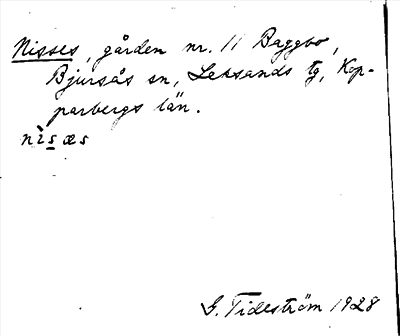 Nisses, gården nr. 11 Baggbo,
Bjursås sn, Leksands tg, Kop-
parbergs län.
nìsæs
G. Tideström 1928